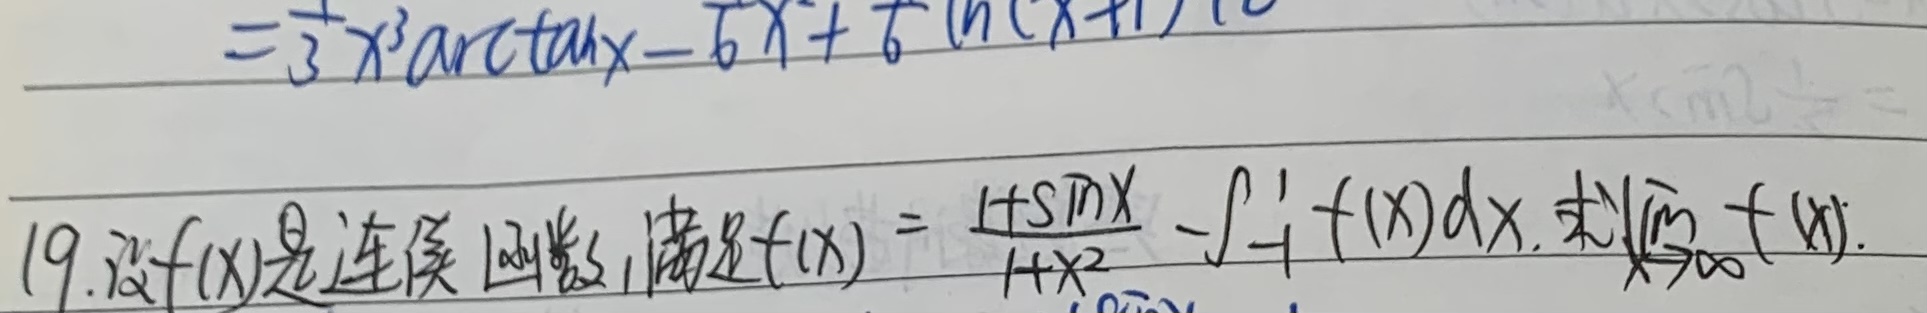 =1/3 x³arctanx - 1/6 x² + 1/6 ln(x²+1)+C
19.设f(x)是连续函数,满足f(x) = (1+sinx)/(1+x²) - ∫₋₁¹ f(x)dx.求lim_{x→∞} f(x).